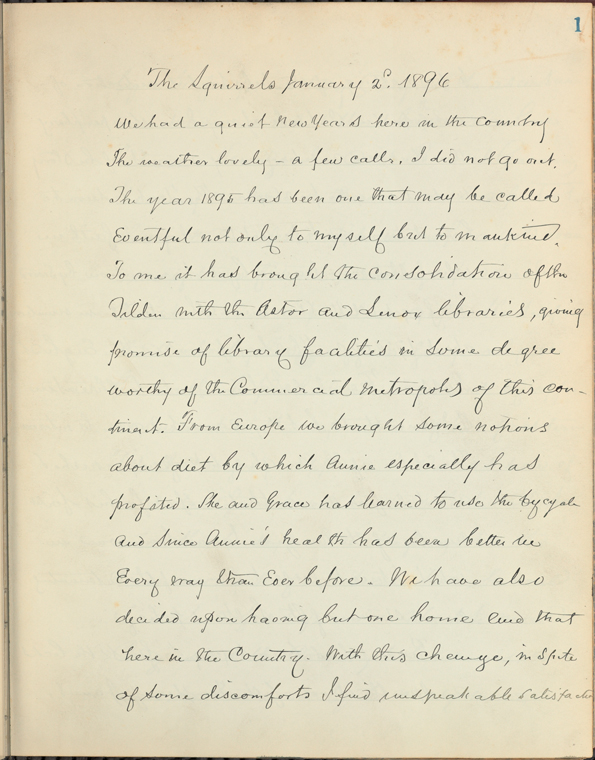 1
The Squirrels January 2d. 1896
We had a quiet New Years here in the country
The weather lovely – a few calls. I did not go out.
The year 1895 has been one that may be called
Eventful not only to myself but to mankind.
To me it has brought the consolidation of the
Tilden with the Astor and Lenox libraries, giving
promise of library facilities in some degree
worthy of the Commercial Metropolis of this con-
tinent. From Europe we brought some notions
about diet by which Annie especially has
profited. She and Grace has learned to use the bycycle
and since Annie's health has been better in
Every way than Ever before. We have also
decided upon having but one home and that
here in the Country. With this change, in spite
of some discomforts I find unspeakable satisfaction